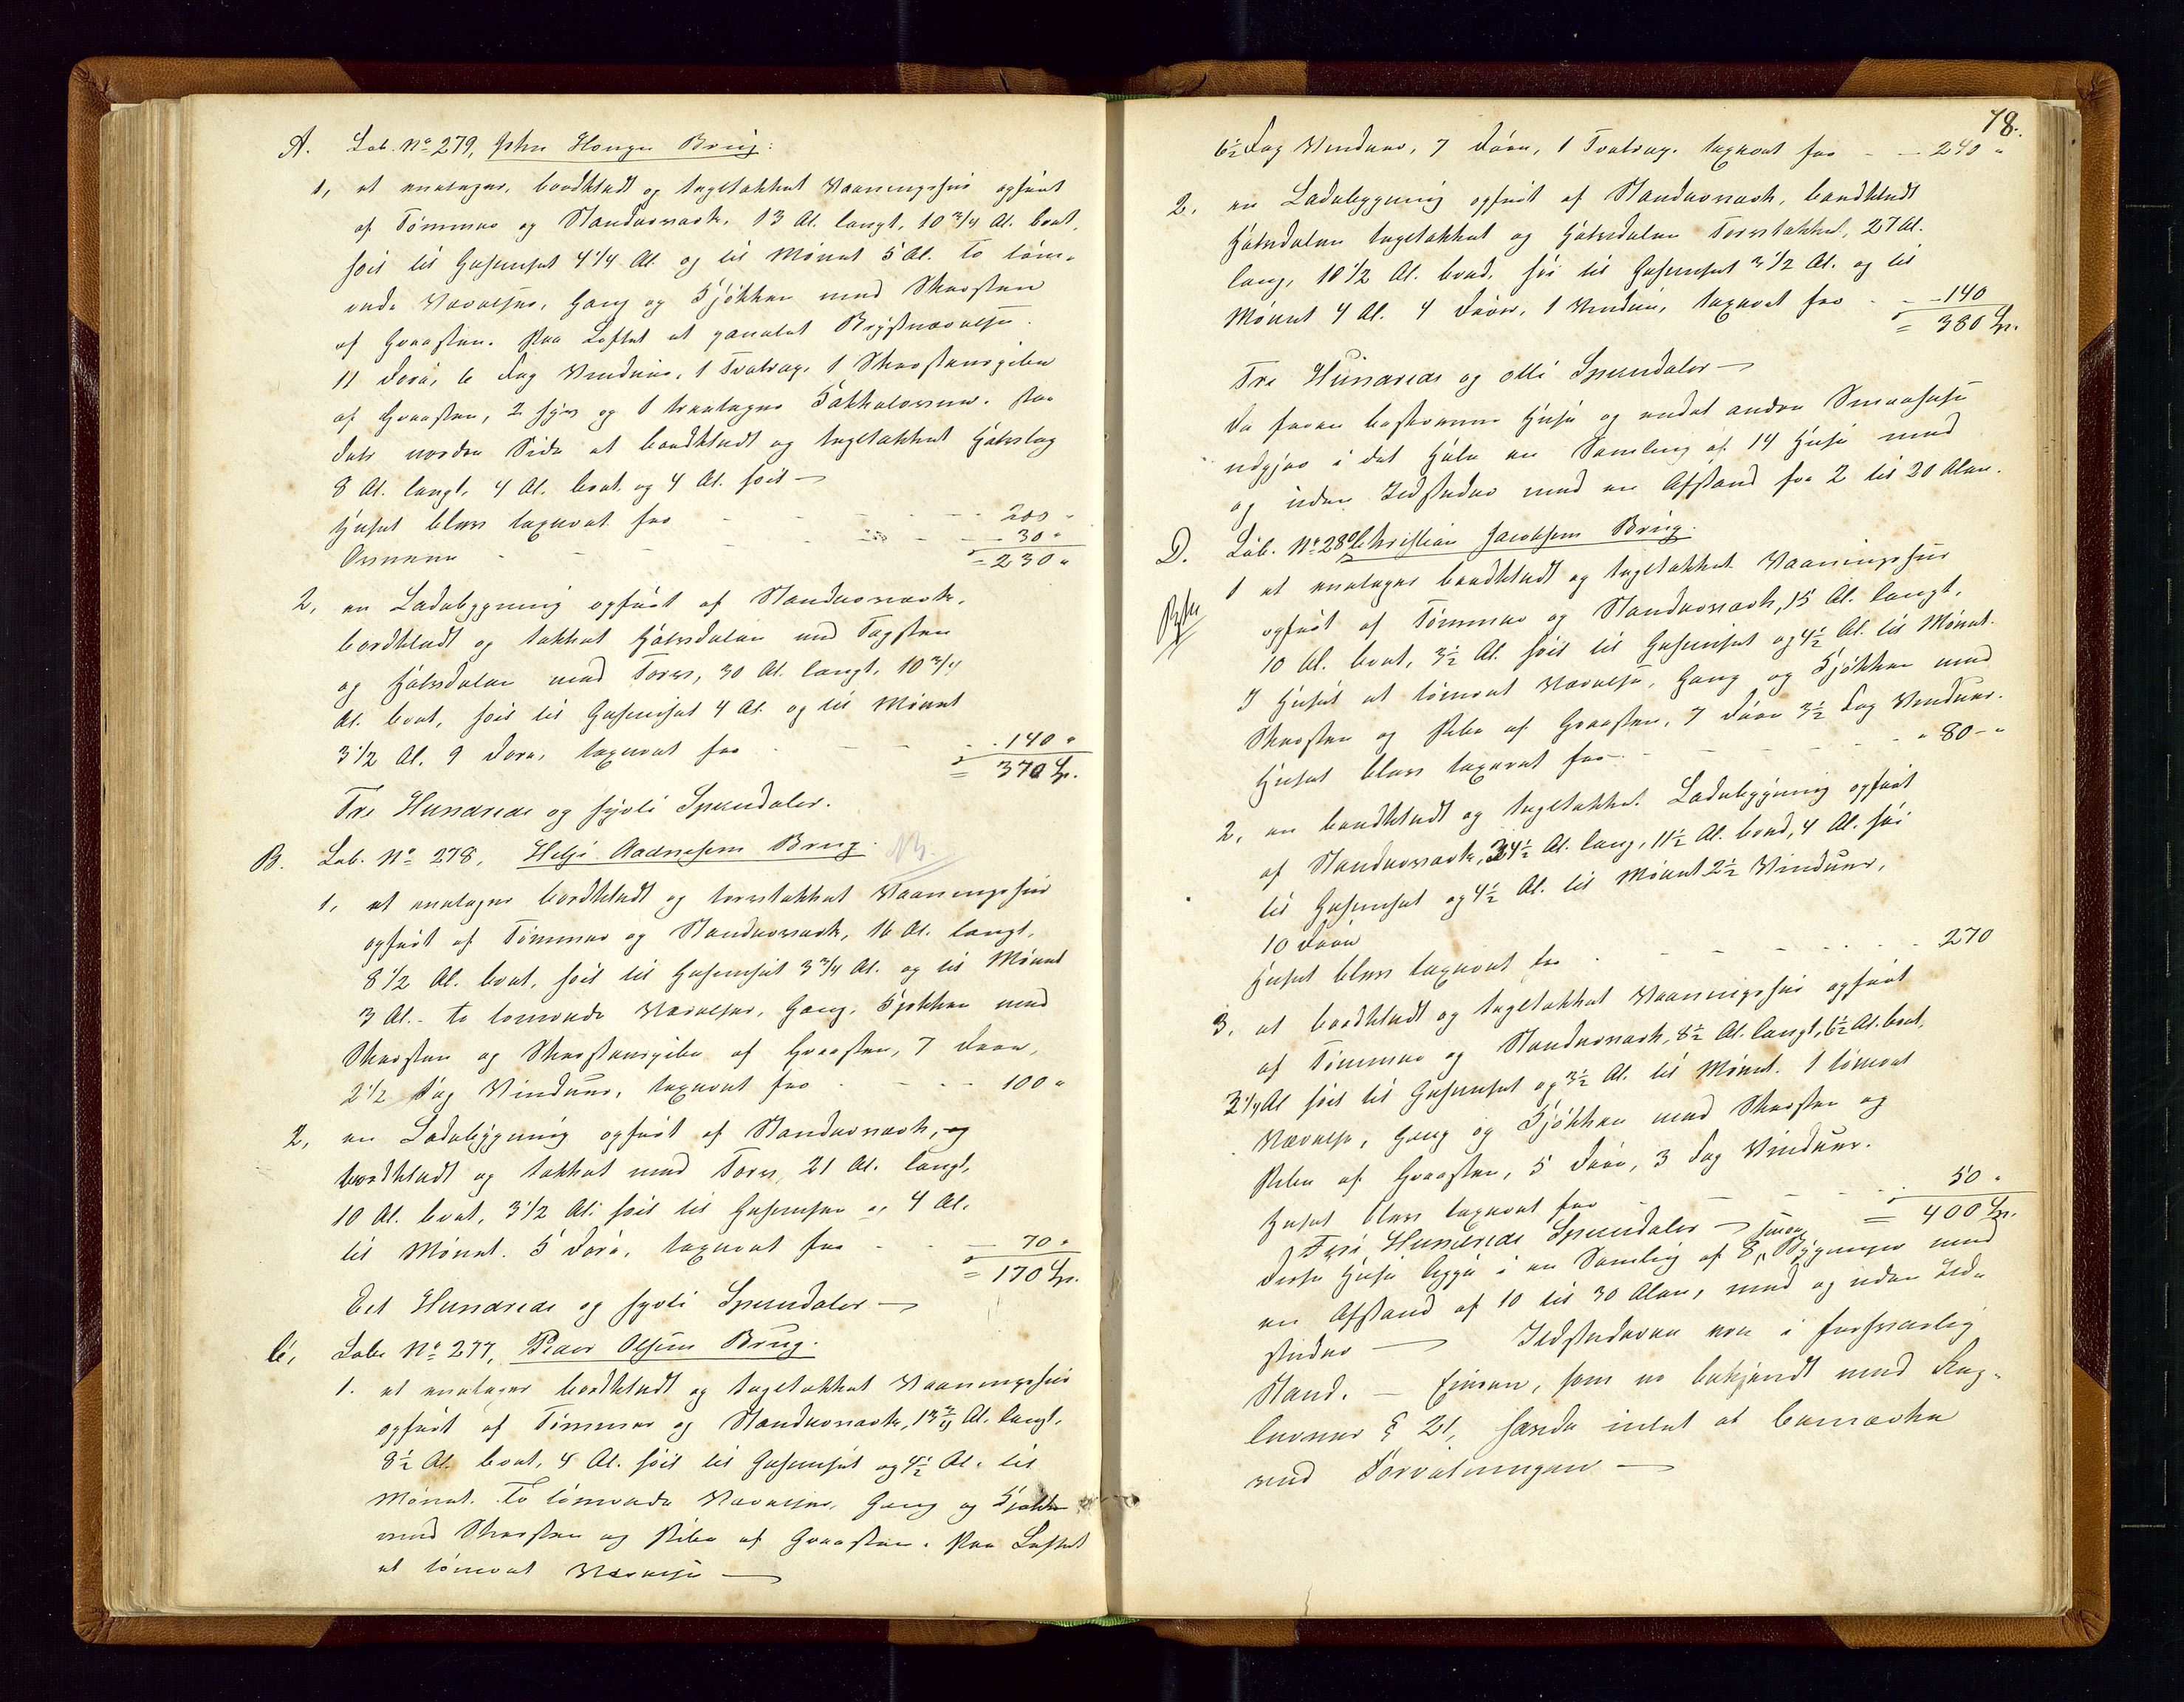 A. Lab. No 279, John Hauges Brug:
1, et enetages, bordklædt og tegltækket Vaaningshus opført
af Tømmer og Standerværk, 13 Al. langt, 10 3/4 Al. bredt,
høit til Gesimset 4 1/4 Al. og til Mønet 5 Al. To tøm-
rede Værelser, Gang og Kjøkken med Skorsten
af Graasten. Paa Loftet et paneletVærelse.
11 Døre, 6 Fag Vinduer, 1 Trætrap, 1 Skorstenspibe
af Graasten, 2 og 1 treetages Kakkelovne. Paa
dets nordre Side et bordklædt og tegltækket Halvtag
8 Al. langt, 4 Al. bredt og 4 Al. høit —
Huset blev taxeret for - - - 200 "
Ovnene - - - 30 "
= 230 "
2, en Ladebygning opført af Standerværk,
bordklædt og tækket Halvdelen med Tagsten
og Halvdelen med Torv, 30 Al. langt, 10 3/4
Al. bredt, høit til Gesimset 4 Al. og til Mønet
3 1/2 Al. 9 Døre, taxeret for - - 140 "
= 370 Sp.
Tre Hundrede og syvti Speciedaler.
B. Lab. No 278, Helje Aadnesens Brug.
1, et enetages bordklædt og torvtækket Vaaningshus
opført af Tømmer og Standerværk, 16 Al. langt,
8 1/2 Al. bredt, høit til Gesimset 3 3/4 Al. og til Mønet
3 Al. - To tømrede Værelser, Gang, Kjøkken med
Skorsten og Skorstenspibe af Graasten, 7 Døre,
2 1/2 Fag Vinduer, taxeret for - - - 100 "
2, en Ladebygning opført af Standerværk, og
bordklædt og tækket med Torv, 21 Al. langt,
10 Al. bredt, 3 1/2 Al. høit til Gesimsen og 4 Al.
til Mønet. 5 Døre, taxeret for - - - 70 "
= 170 Sp.
Eet Hundrede og syvti Speciedaler —
C, Labe No 277, Peder Olsens Brug.
1. et enetages bordklædt og tegltækket Vaaningshus
opført af Tømmer og Standerværk, 13 3/4 Al. langt,
8 1/2 Al. bredt, 4 Al. høit til Gesimset og 4 1/2 Al. til
Mønet. To tømrede Værelser, Gang og Kjøkken
med Skorsten og Pibe af Graasten. Paa Loftet
et tømret Værelse —
78.
6 1/2 Fag Vinduer, 7 Døre, 1 Trætrap. taxeret for - - 240 "
2. en Ladebygning opført af Standerværk, bordklædt
Halvdelen tegltækket og Halvdelen Torvtækket, 27 Al.
lang, 10 1/2 Al. bred, høi til Gesimset 3 1/2 Al. og til
Mønet 4 Al. 4 Døre, 1 Vindue, taxeret for - - 140
= 380 Sp.
Tre Hundrede og otti Speciedaler —
De foran beskrevne Huse og endel andre Smaahuse
udgjør i det Hele en Samling af 14 Huse med
og uden Ildsteder med en Afstand fra 2 til 20 Alen.
D. Lab. No 280 Christian Jacobsens Brug.
1 et enetages bordklædt og tegltækket Vaaningshus
opført af Tømmer og Standerværk, 15 Al. langt,
10 Al. bredt, 3 1/2 Al. høit til Gesimset og 4 1/2 Al. til Mønet.
I Huset et tømret Værelse, Gang og Kjøkken med
Skorsten og Pibe af Graasten, 7 Døre 3 1/2 Fag Vinduer.
Huset blev taxeret for - - - 80 - "
2, en bordklædt og tegltækket Ladebygning opført
af Standerværk, 34 1/2 Al. lang, 11 1/2 Al. bred, 4 Al. høi
til Gesimset og 4 1/2 Al. til Mønet 2 1/2 Vinduer,
10 Døre
Huset blev taxeret for - - - 270
3, et bordklædt og tegltækket Vaaningshus opført
af Tømmer og Standerværk, 8 1/2 Al. langt, 6 1/2 Al. bredt,
3 1/4 Al høit til Gesimset og 3 1/2 Al. til Mønet. 1 tømret
Værelse, Gang og Kjøkken med Skorsten og
Pibe af Graasten, 5 Døre, 3 Fag Vinduer.
Huset blev taxeret for - - - 50 "
= 400 Sp.
Fire Hundrede Speciedaler —
Disse Huse ligge i en Samling af 8 Bygninger med
en Afstand af 10 til 30 Alen, med og uden Ild-
steder — Ildstederne ere i forsvarlig
Stand. — Eieren, som er bekjendt med Reg-
lernes § 21, havde intet at bemærke
ved Forretningen —